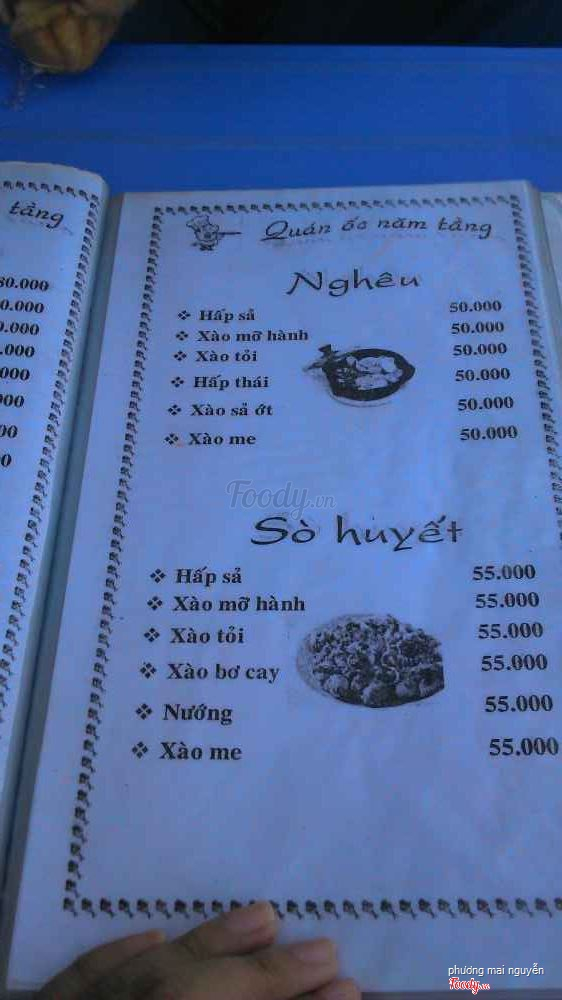 tầng
80.000
0.000
0.000
.000
000
000
00
0
Quán ốc năm tầng
Nghêu
❖ Hấp sả 50.000
❖ Xào mỡ hành 50.000
❖ Xào tỏi 50.000
❖ Hấp thái 50.000
❖ Xào sả ớt 50.000
❖ Xào me 50.000
Foody.vn
Sò huyết
❖ Hấp sả 55.000
❖ Xào mỡ hành 55.000
❖ Xào tỏi 55.000
❖ Xào bơ cay 55.000
❖ Nướng 55.000
❖ Xào me 55.000
phương mai nguyễn
Foody.vn